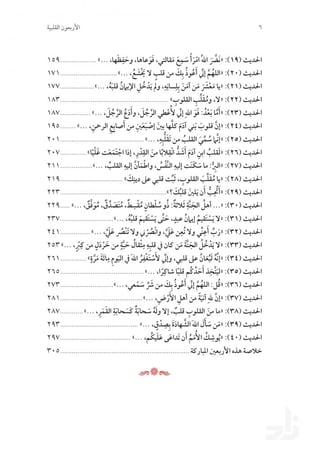 ٦
الأربعون القلبية
الحديث (١٩): «نَضَّرَ اللهُ امْرَأً سَمِعَ مَقالتي، فَوَعاها، وحَفِظَها، ...» ١٥٩
الحديث (٢٠): «اللهُمَّ إنِّي أَعُوذُ بِكَ من قلبٍ لا يَخْشَعُ، ...» ١٧١
الحديث (٢١): «يا مَعْشَرَ مَن آمَنَ بِلِسانِهِ، ولم يَدْخُلِ الإيمانُ قلبَهُ، ...» ١٧٧
الحديث (٢٢): «لا، ومُقَلِّبِ القلوبِ» ١٨٣
الحديث (٢٣): «أمَّا بَعْدُ: فَوَ اللهِ إنِّي لأُعطي الرَّجُلَ، وأَدَعُ الرَّجُلَ، ...» ١٨٧
الحديث (٢٤): «إنَّ قلوبَ بَني آدَمَ كلَّها بينَ إصْبَعَيْنِ من أصابِعِ الرحمنِ، ...» ١٩٥
الحديث (٢٥): «إنَّما سُمِّيَ القلبُ من تَقَلُّبِهِ، ...» ٢٠١
الحديث (٢٦): «لَقلبُ ابنِ آدَمَ أَشَدُّ انْقِلابًا مِنَ القِدْرِ، إذا اجْتَمَعَتْ غَلْيًا» ٢٠٧
الحديث (٢٧): «البِرُّ: ما سَكَنَتْ إليه النَّفْسُ، واطْمَأَنَّ إليه القلبُ، ...» ٢١١
الحديث (٢٨): «يا مُقَلِّبَ القلوبِ، ثَبِّتْ قلبي على دِينِكَ» ٢١٩
الحديث (٢٩): «أَتُحِبُّ أن يَلِينَ قلبُكَ؟» ٢٢٣
الحديث (٣٠): «... أهلُ الجنَّةِ ثلاثةٌ: ذُو سُلطانٍ مُقْسِطٌ، مُتَصَدِّقٌ، مُوَفَّقٌ، ...» ٢٢٩
الحديث (٣١): «لا يَسْتَقيمُ إيمانُ عبدٍ، حتَّى يَسْتَقيمَ قلبُهُ، ...» ٢٣٧
الحديث (٣٢): «رَبِّ أَعِنِّي ولا تُعِنْ عَلَيَّ، وانْصُرْني ولا تَنْصُرْ عَلَيَّ، ...» ٢٤١
الحديث (٣٣): «لا يَدْخُلُ الجنَّةَ مَن كان في قلبِهِ مِثْقالُ حَبَّةٍ من خَرْدَلٍ من كِبْرٍ، ...» ٢٥٣
الحديث (٣٤): «إنَّهُ لَيُغانُ على قلبي، وإنِّي لأَسْتَغْفِرُ اللهَ في اليَومِ مِائَةَ مَرَّةٍ» ٢٦١
الحديث (٣٥): «لِيَتَّخِذْ أَحَدُكُم قلبًا شاكِرًا، ...» ٢٦٥
الحديث (٣٦): «قُل: اللهُمَّ إنِّي أَعُوذُ بِكَ من شَرِّ سَمْعي، ...» ٢٧٣
الحديث (٣٧): «إنَّ للهِ آنِيَةً من أهلِ الأَرْضِ، ...» ٢٨١
الحديث (٣٨): «ما مِنَ القلوبِ قلبٌ، إلا ولَهُ سَحابَةٌ كَسَحابَةِ القَمَرِ، ...» ٢٨٧
الحديث (٣٩): «مَن سَأَلَ اللهَ الشَّهادَةَ بِصِدْقٍ، ...» ٢٩٣
الحديث (٤٠): «يُوشِكُ الأُمَمُ أن تَداعَى عَلَيكُم، ...» ٢٩٧
خلاصة هذه الأربعين المباركة ٣٠٥
زاد